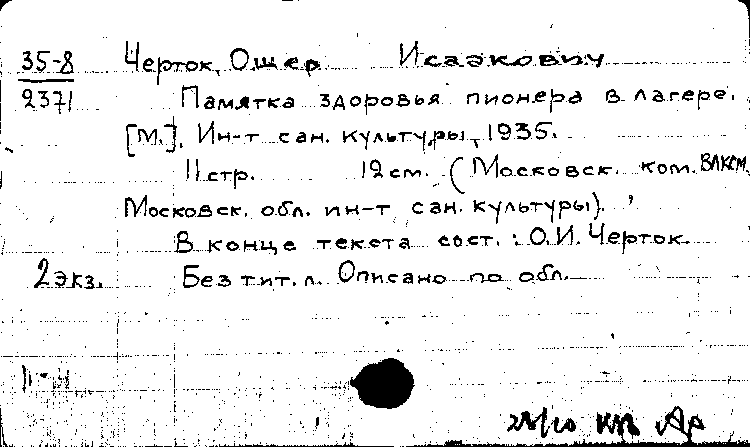 35-8 Черток, Ошер Исаакович
2371 Памятка здоровья пионера в лагере.
[М.], Ин-т сан. культуры, 1935.
11 стр. 12 см. (Московск. ком. ВЛКСМ.
Московск. обл. ин-т сан. культуры).
В конце текста сост.: О.И. Черток.
2 экз. Без тит. л. Описано по обл.